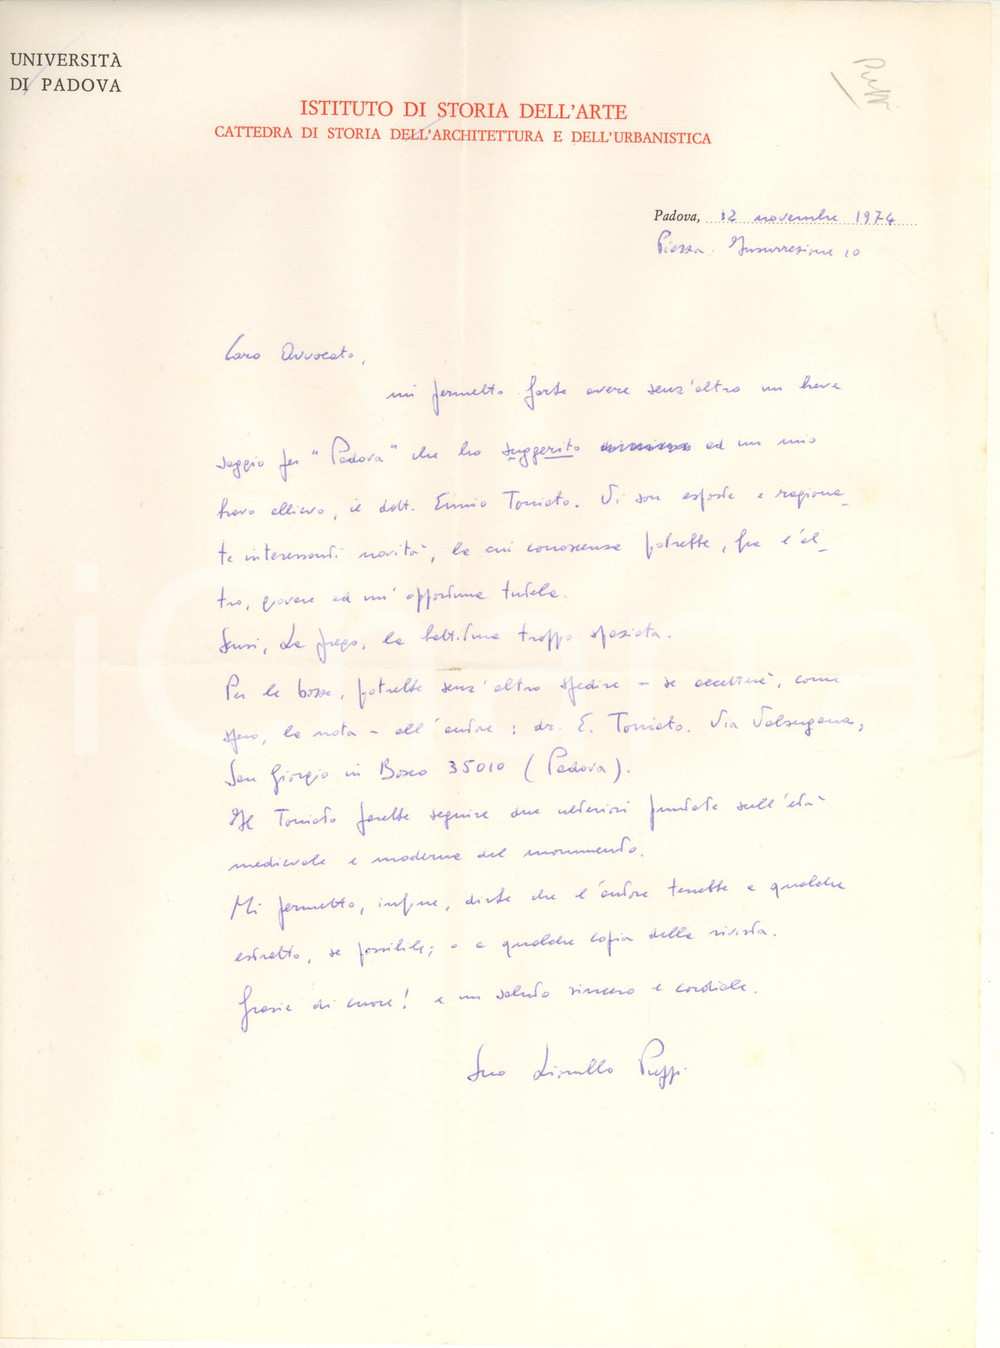 UNIVERSITÀ
DI PADOVA
Puppi
ISTITUTO DI STORIA DELL'ARTE
CATTEDRA DI STORIA DELL'ARCHITETTURA E DELL'URBANISTICA
Padova, 12 novembre 1974
Piazza Insurrezione 10
Caro Avvocato,
mi permetto farle avere senz'altro un breve
saggio per "Padova" che ho suggerito ad un mio
bravo allievo, il dott. Ennio Toniato. Vi son esposte e ragiona-
te interessanti novità, la cui conoscenza potrebbe, fra l'al-
tro, giovare ad un'opportuna tutela.
Scusi, La prego, la battitura troppo spaziata.
Per le bozze, potrebbe senz'altro spedire – se accetterà, come
spero, la nota – all'autore: dr. E. Toniato. Via Valsugana,
San Giorgio in Bosco 35010 (Padova).
Il Toniato farebbe seguire due ulteriori puntate sull'età
medievale e moderna del monumento.
Mi permetto, infine, dirle che l'autore terrebbe a qualche
estratto, se possibile; o a qualche copia della rivista.
Grazie di cuore! e un saluto sincero e cordiale.
Suo Lionello Puppi